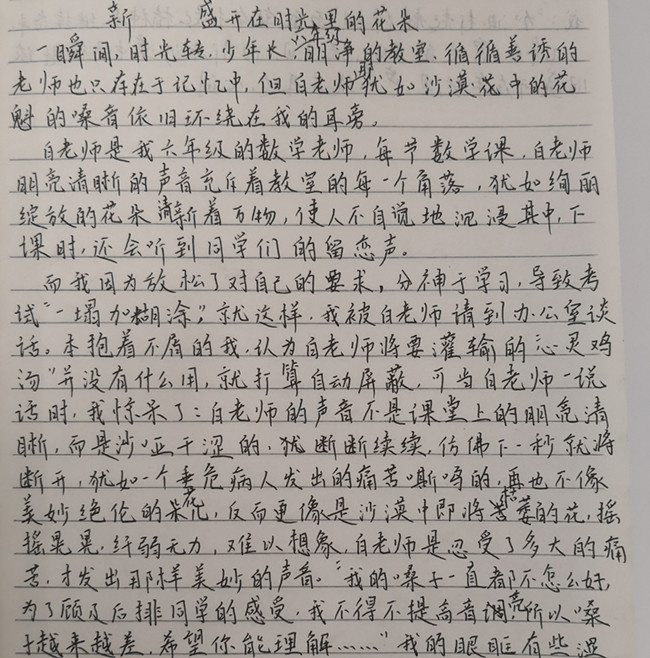 新 盛开在时光里的花朵
一瞬间,时光转,少年长,六年级明净的教室,循循善诱的
老师也只存在于记忆中,但白老师那犹如沙漠花中的花
魁的嗓音依旧环绕在我的耳旁。
白老师是我六年级的数学老师,每节数学课,白老师
明亮清晰的声音充斥着教室的每一个角落,犹如绚丽
绽放的花朵清新着万物,使人不自觉地沉浸其中,下
课时,还会听到同学们的留恋声。
而我因为放松了对自己的要求,分神于学习,导致考
试“一塌加糊涂”,就这样,我被白老师请到办公室谈
话。本抱着不屑的我,认为白老师将要灌输的“心灵鸡
汤”并没有什么用,就打算自动屏蔽,可当白老师一说
话时,我惊呆了:白老师的声音不是课堂上的明亮清
晰,而是沙哑干涩的,犹断断续续,仿佛下一秒就将
断开,犹如一个垂危病人发出的痛苦嘶鸣的,再也不像
美妙绝伦的花朵,反而更像是沙漠中即将枯萎的花,摇
摇晃晃,纤弱无力,难以想象,白老师是忍受了多大的痛
苦,才发出那样美妙的声音。“我的嗓子一直都不怎么好,
为了顾及后排同学的感受,我不得不提高音调,所以嗓
子越来越差,希望你能理解……”我的眼眶有些湿